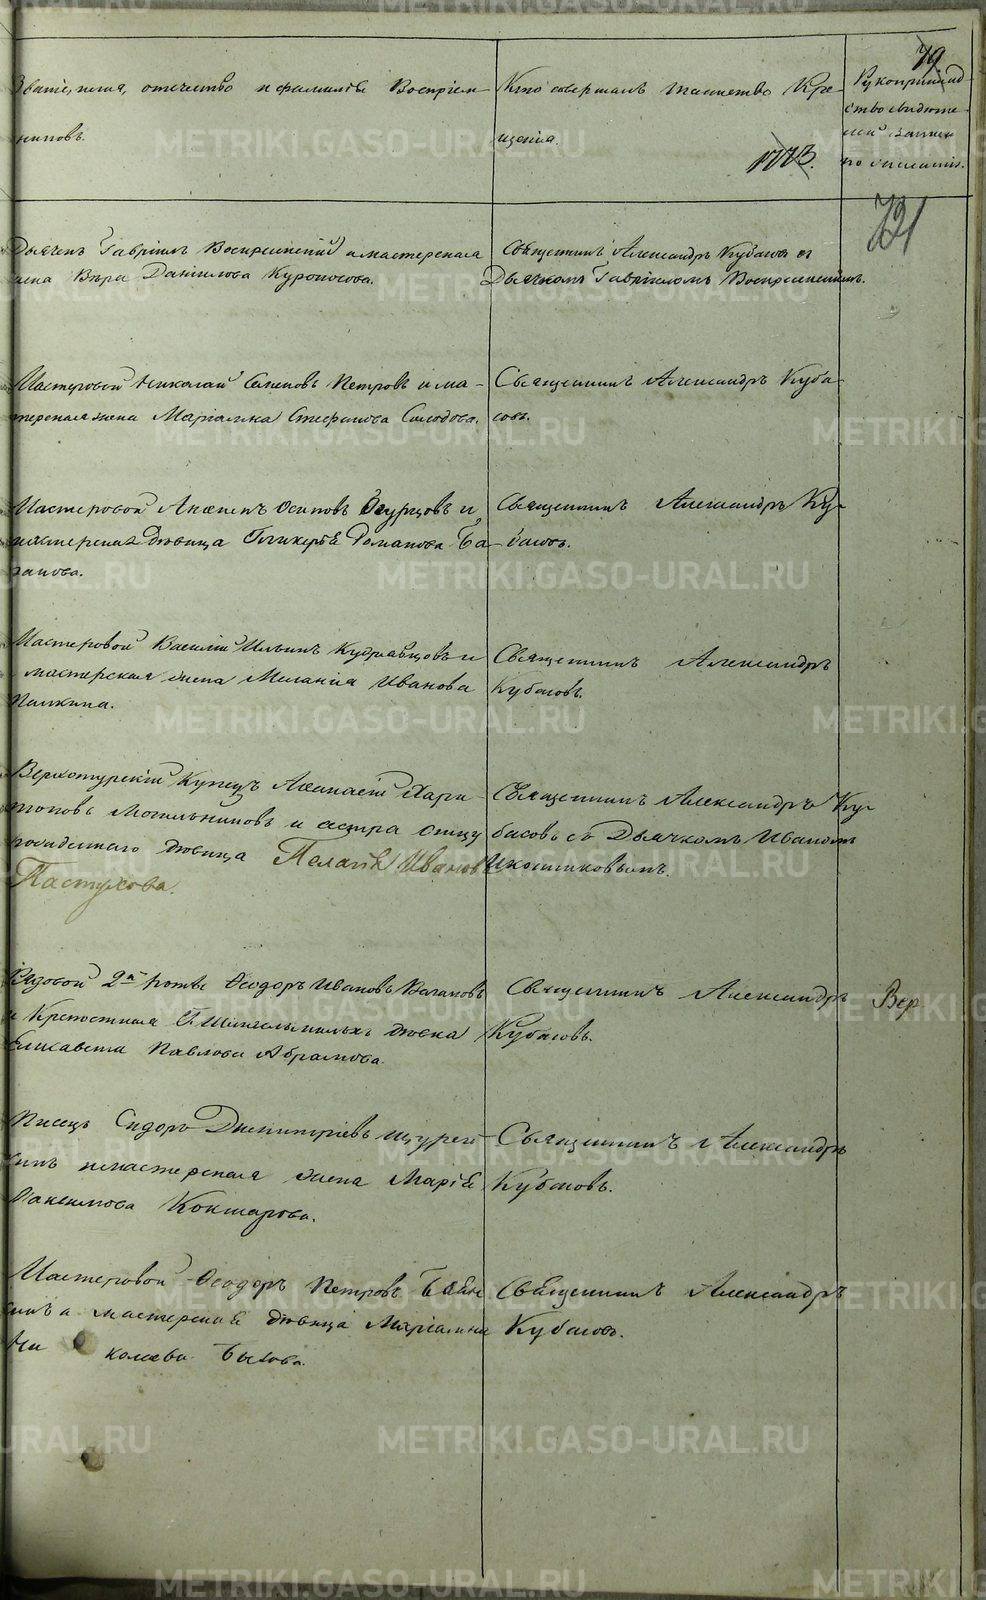 79
Званіе, имя, отечество и фамилія Воспріем-
никовъ.
Кто совершалъ таинство Кре-
щенія.
1773.
Рукоприклад
ство свидѣте-
лей записи
по желанію.
721
Дьячекъ Гавріилъ Воскресенскій и мастерская
жена Вѣра Данилова Куроносова.
Священникъ Александръ Кубасовъ съ
Дьячкомъ Гавріиломъ Воскресенскимъ.
Мастеровой Николай Семеновъ Петровъ и ма-
терская жена Маріамна Стефанова Солодова.
Священникъ Александръ Куба-
совъ.
Мастеровой Осиповъ Огурцовъ и
мастерская дѣвица Гликерія Романова Ба-
занова.
Священникъ Александръ Ку-
басовъ.
Мастеровой Василій Ильинъ Кудрявцовъ и
мастерская жена Меланія Иванова
Палкина.
Священникъ Александръ
Кубасовъ.
Верхотурскій Купецъ Афанасій Хари-
тоновъ Могильниковъ и сестра отцу
дѣвица Пелагія Иванова
Пастухова.
Священникъ Александръ Ку-
басовъ съ Дьячкомъ Иваномъ
Рядовой 2й роты Ѳеодоръ Ивановъ
и Крепостная дѣвка
Елисавета Павлова Абрамова.
Священникъ Александръ
Кубасовъ.
Вер
Писецъ Сидоръ Димитріевъ
и мастерская жена Марія
Максимова Кокшарова.
Священникъ Александръ
Кубасовъ.
Мастеровой Ѳеодоръ Петровъ
и мастерская дѣвица Маріамна
Ни колаева Быкова.
Священникъ Александръ
Кубасовъ.
METRIKI.GASO-URAL.RU